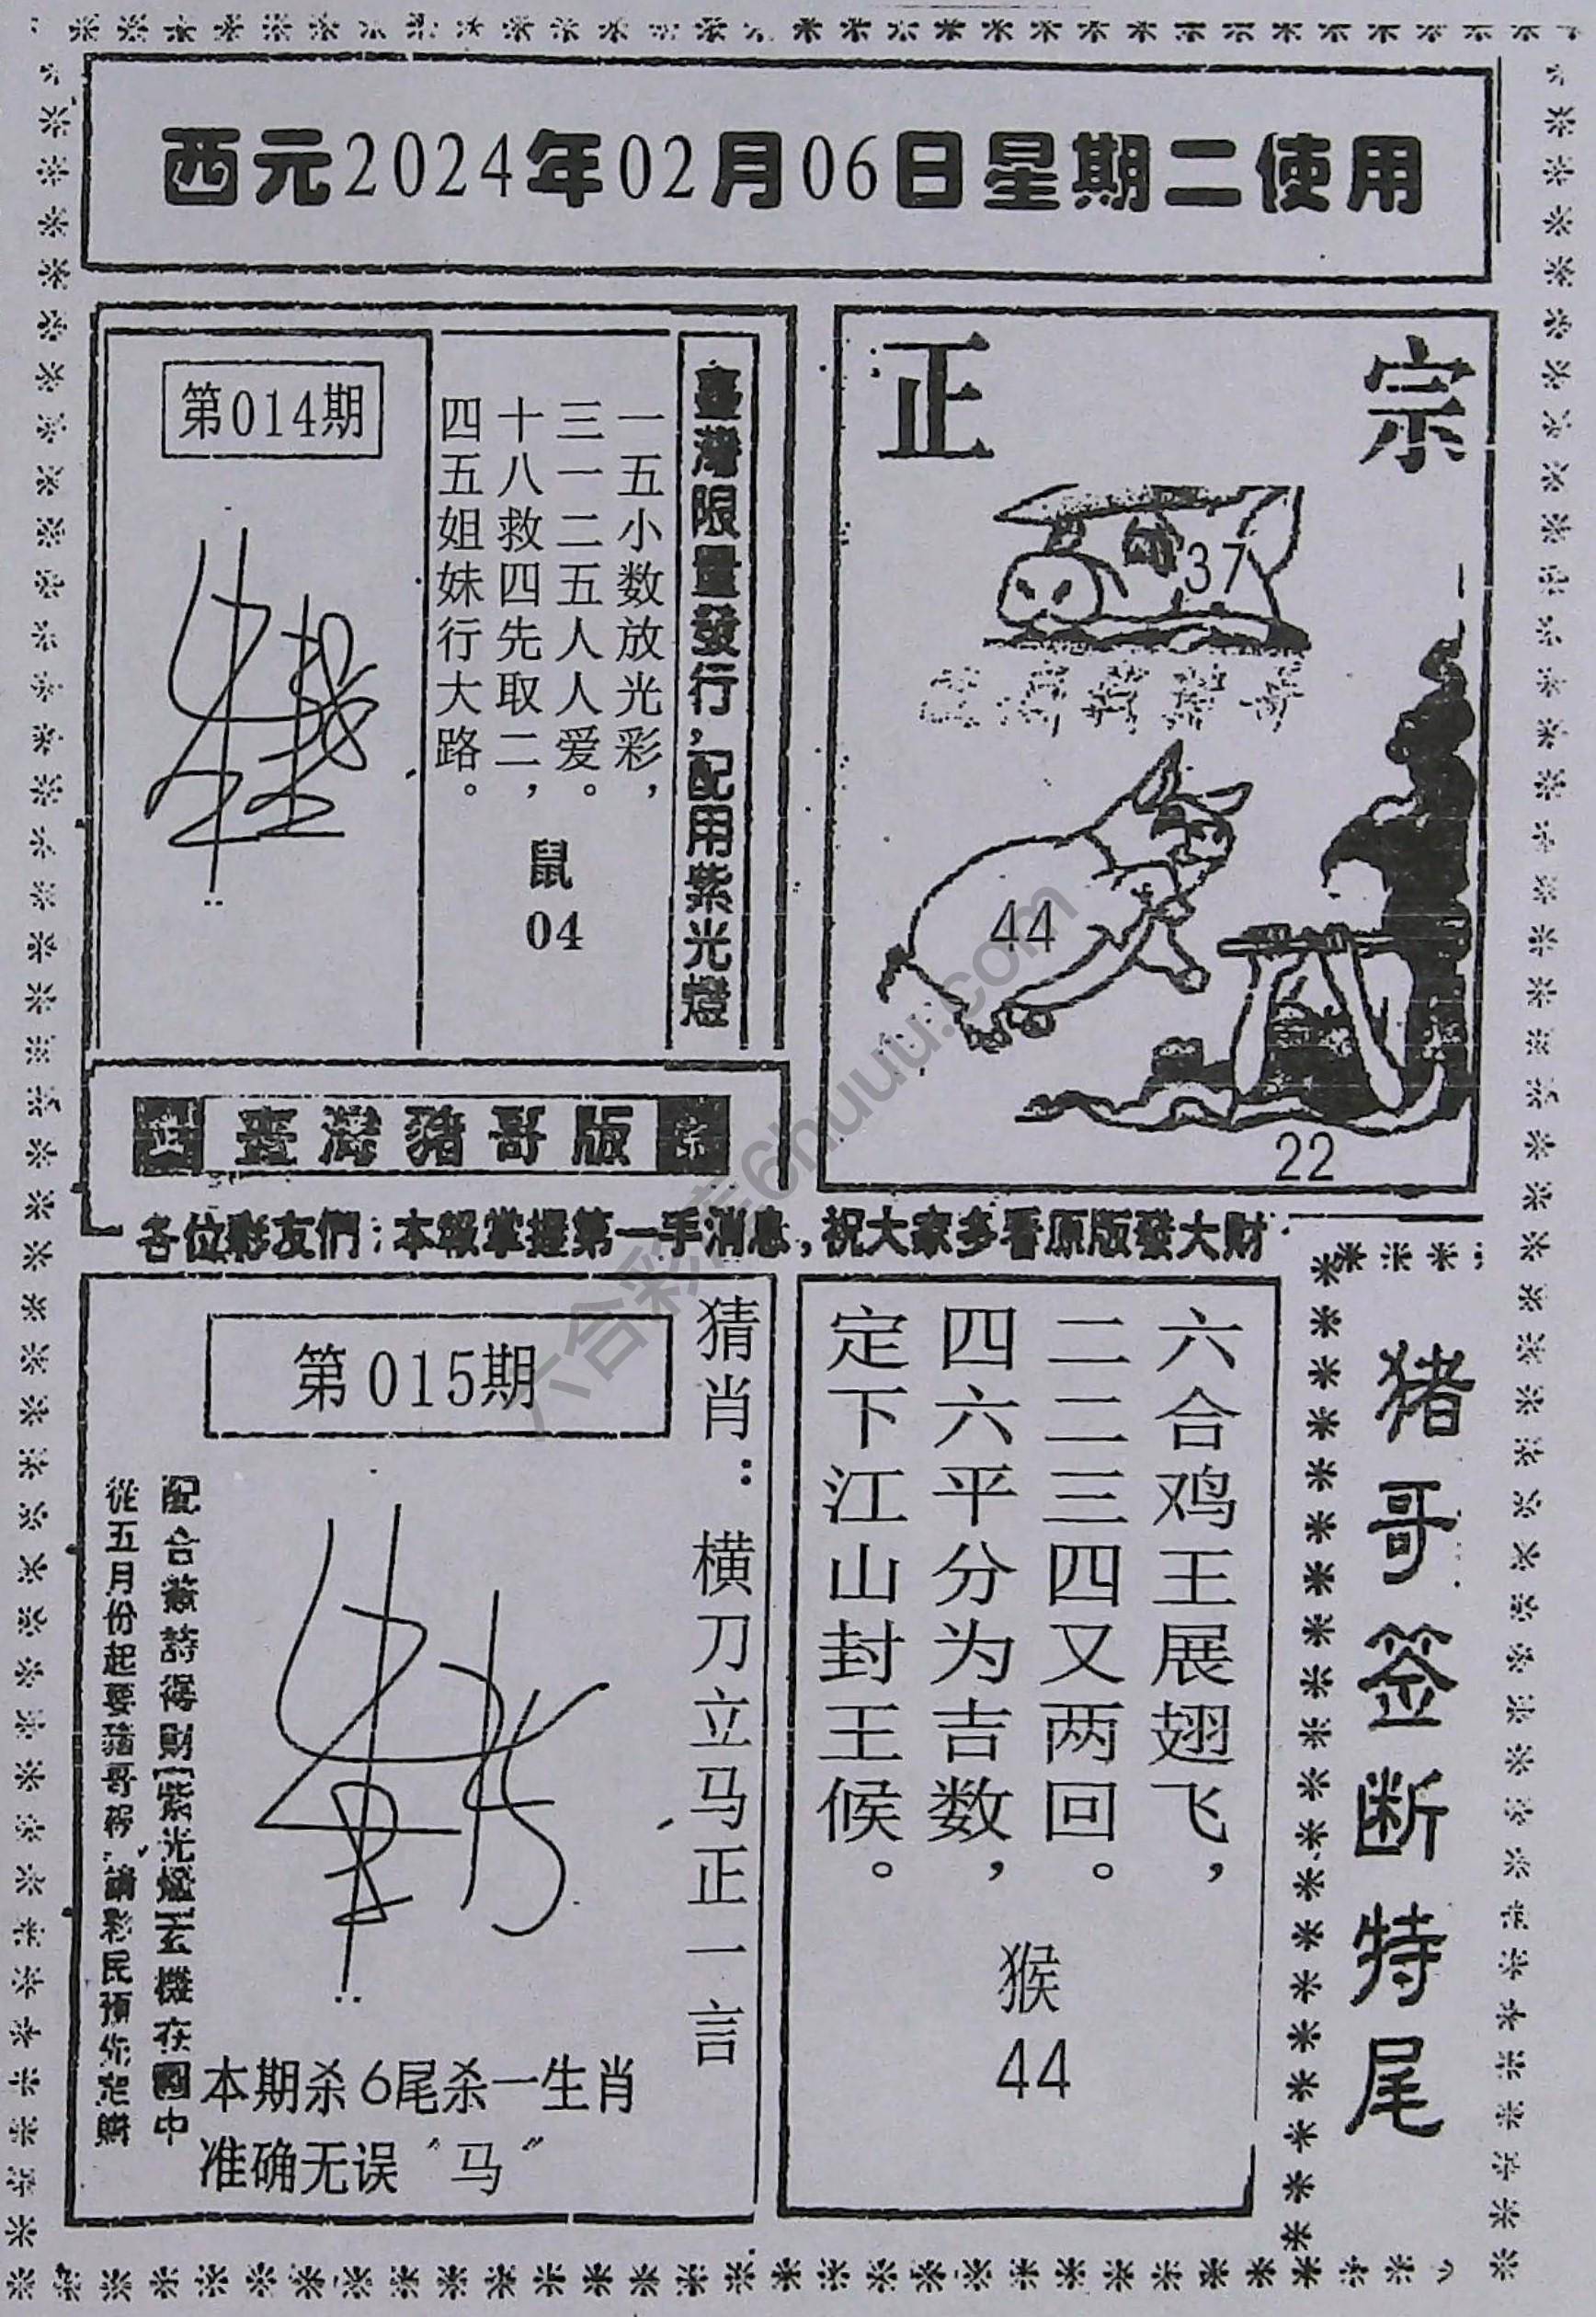 西元2024年02月06日星期二使用
第014期
一五小数放光彩，
三一二五人人爱。
十八救四先取二，
四五姐妹行大路。
鼠
04
臺灣限量發行，配用紫光燈
正宗
37
44
22
正 臺灣豬哥版 宗
各位彩友們：本報掌握第一手消息，祝大家多看原版發大财
第015期
猜肖：横刀立马正一言
配合簽詩得財【紫光燈】玄機在圖中
從五月份起要豬哥報，請彩民預先定購
本期杀6尾杀一生肖
准确无误〝马〞
六合鸡王展翅飞，
二二三四又两回。
四六平分为吉数，
定下江山封王候。
猴
44
猪哥签断特尾
六合彩库6huuu.com